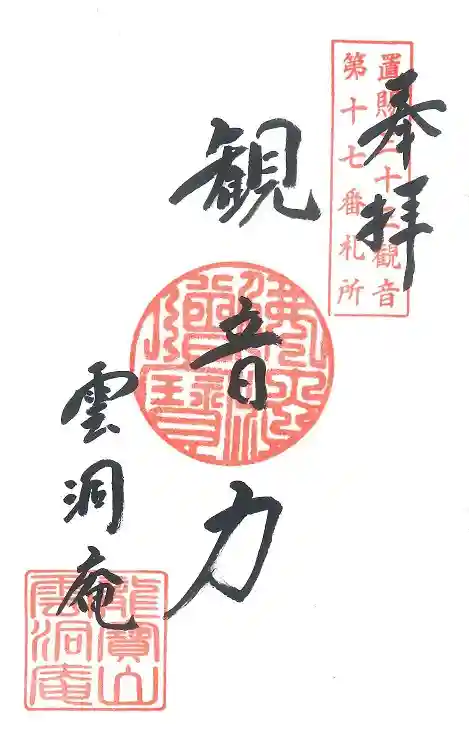 奉拝
置賜三十三観音
第十七番札所
観音力
佛法僧寶
雲洞庵
龍寶山
雲洞庵